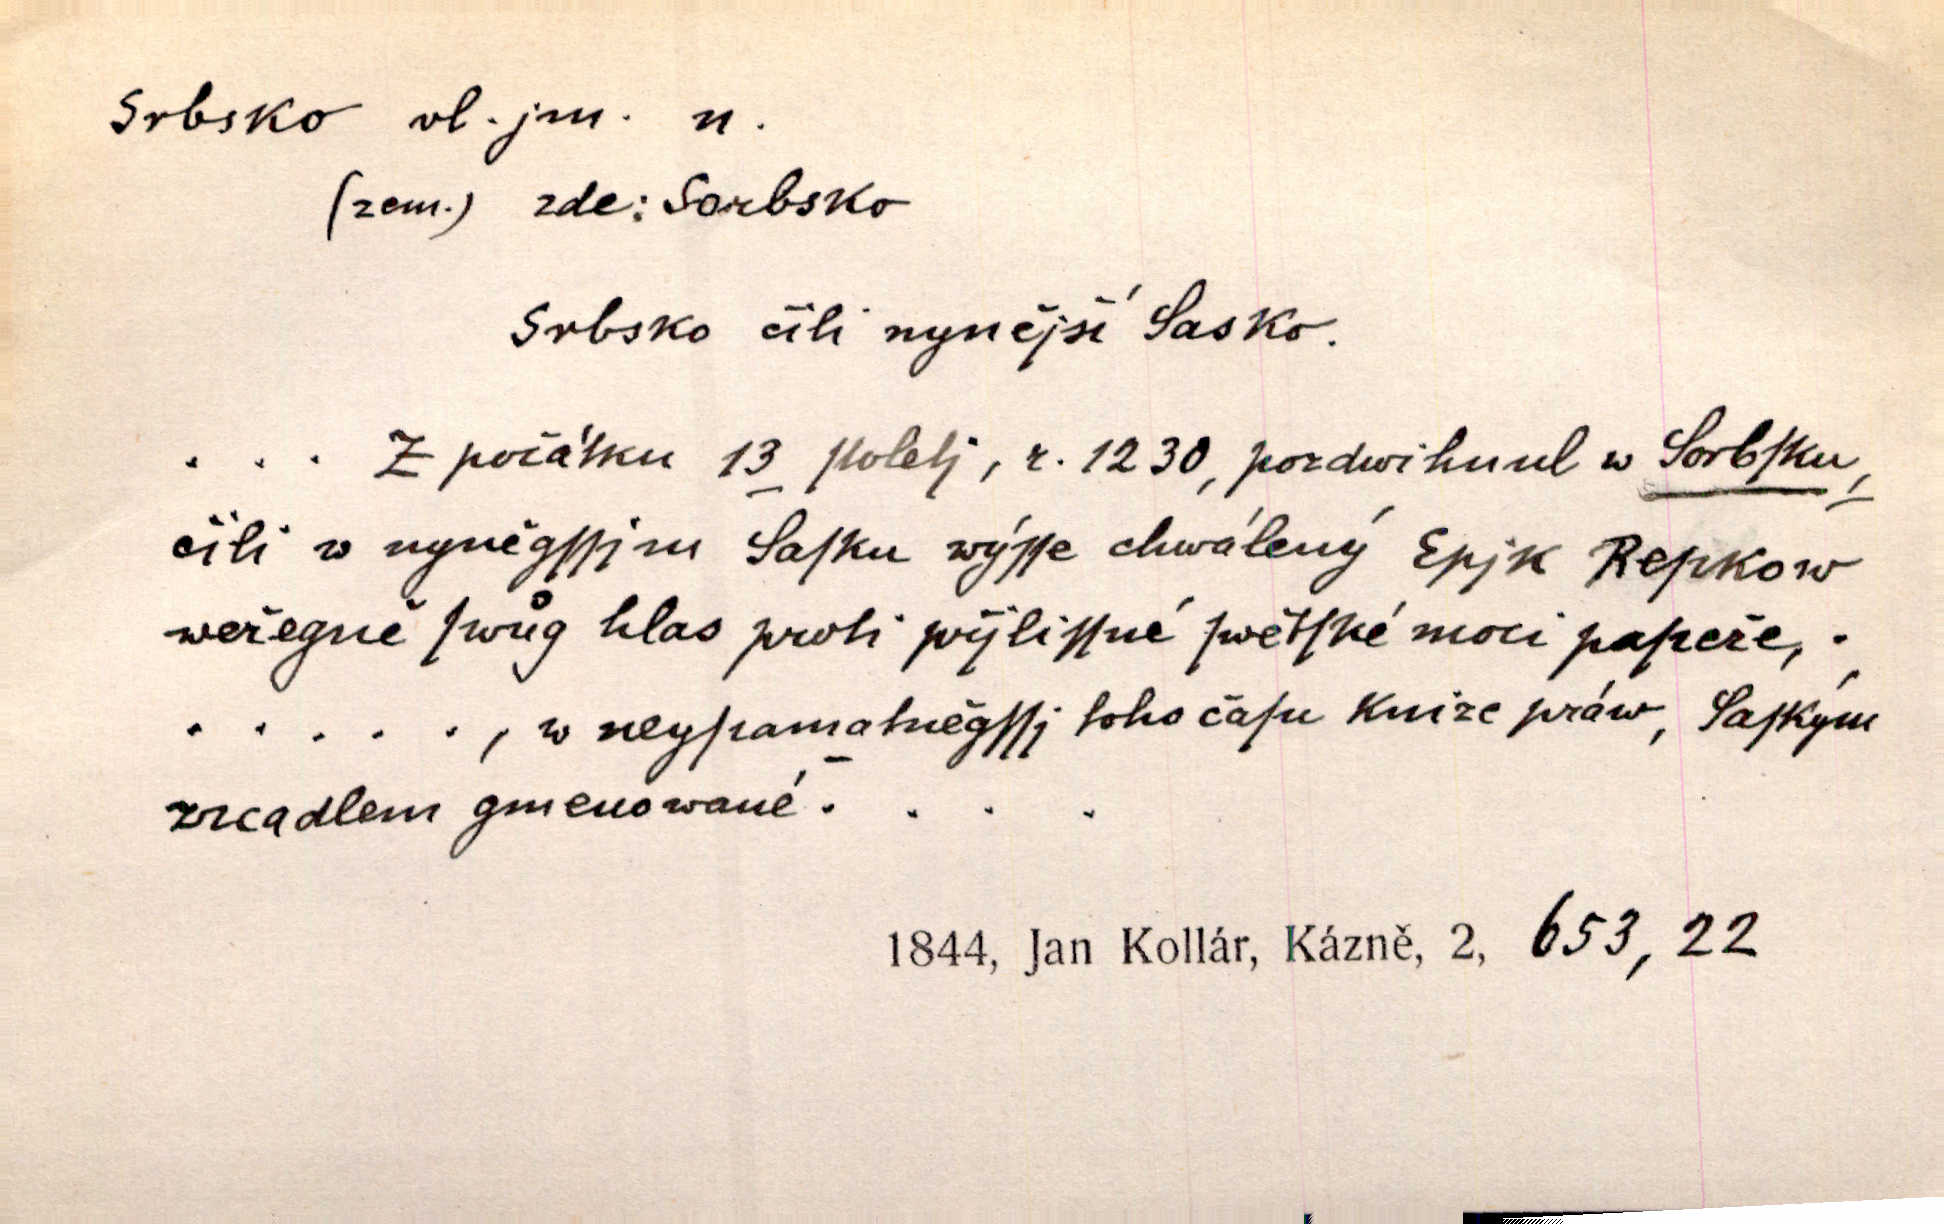 Srbsko vl. jm. n.
(zem.) zde: Sorbsko
Srbsko čili nynější Sasko.
. . . Z počátku 13 ſtoletj, r. 1230, pozdwihnul w Sorbſku,
čili w nyněgſſjm Saſku wýſſe chwálený Epjk Repkow
weřegně ſwůg hlas proti přjliſſné ſwětſké moci papeže, .
. . . . . , w neypamatněgſſj toho čaſu knize práw, Saſkým
zrcadlem gmenowané . . . .
1844, Jan Kollár, Kázně, 2, 653, 22